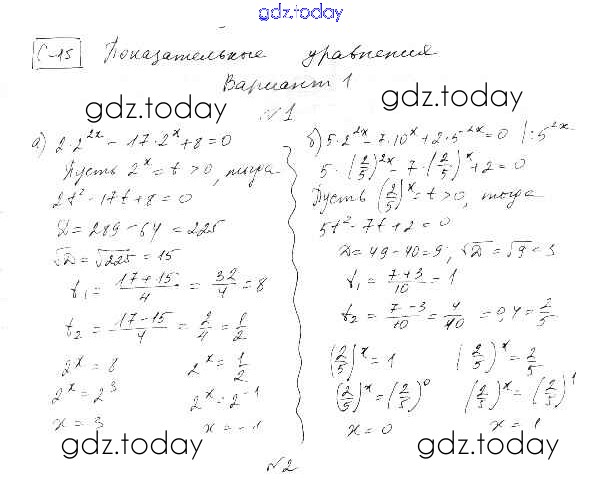 gdz.today
С-15 Показательные уравнения
Вариант 1
gdz.today gdz.today
№1
а) 2·2^2x − 17·2^x + 8 = 0
Пусть 2^x = t > 0, тогда
2t² − 17t + 8 = 0
D = 289 − 64 = 225
√D = √225 = 15
t₁ = (17+15)/4 = 32/4 = 8
t₂ = (17−15)/4 = 2/4 = 1/2
2^x = 8 2^x = 1/2
2^x = 2^3 2^x = 2^−1
x = 3 x = −1
б) 5·2^2x − 7·10^x + 2·5^2x = 0 |: 5^2x
5·(2/5)^2x − 7·(2/5)^x + 2 = 0
Пусть (2/5)^x = t > 0, тогда
5t² − 7t + 2 = 0
D = 49 − 40 = 9; √D = √9 = 3
t₁ = (7+3)/10 = 1
t₂ = (7−3)/10 = 4/10 = 0,4 = 2/5
(2/5)^x = 1 (2/5)^x = 2/5
(2/5)^x = (2/5)^0 (2/5)^x = (2/5)^1
x = 0 x = 1
gdz.today gdz.today
№2